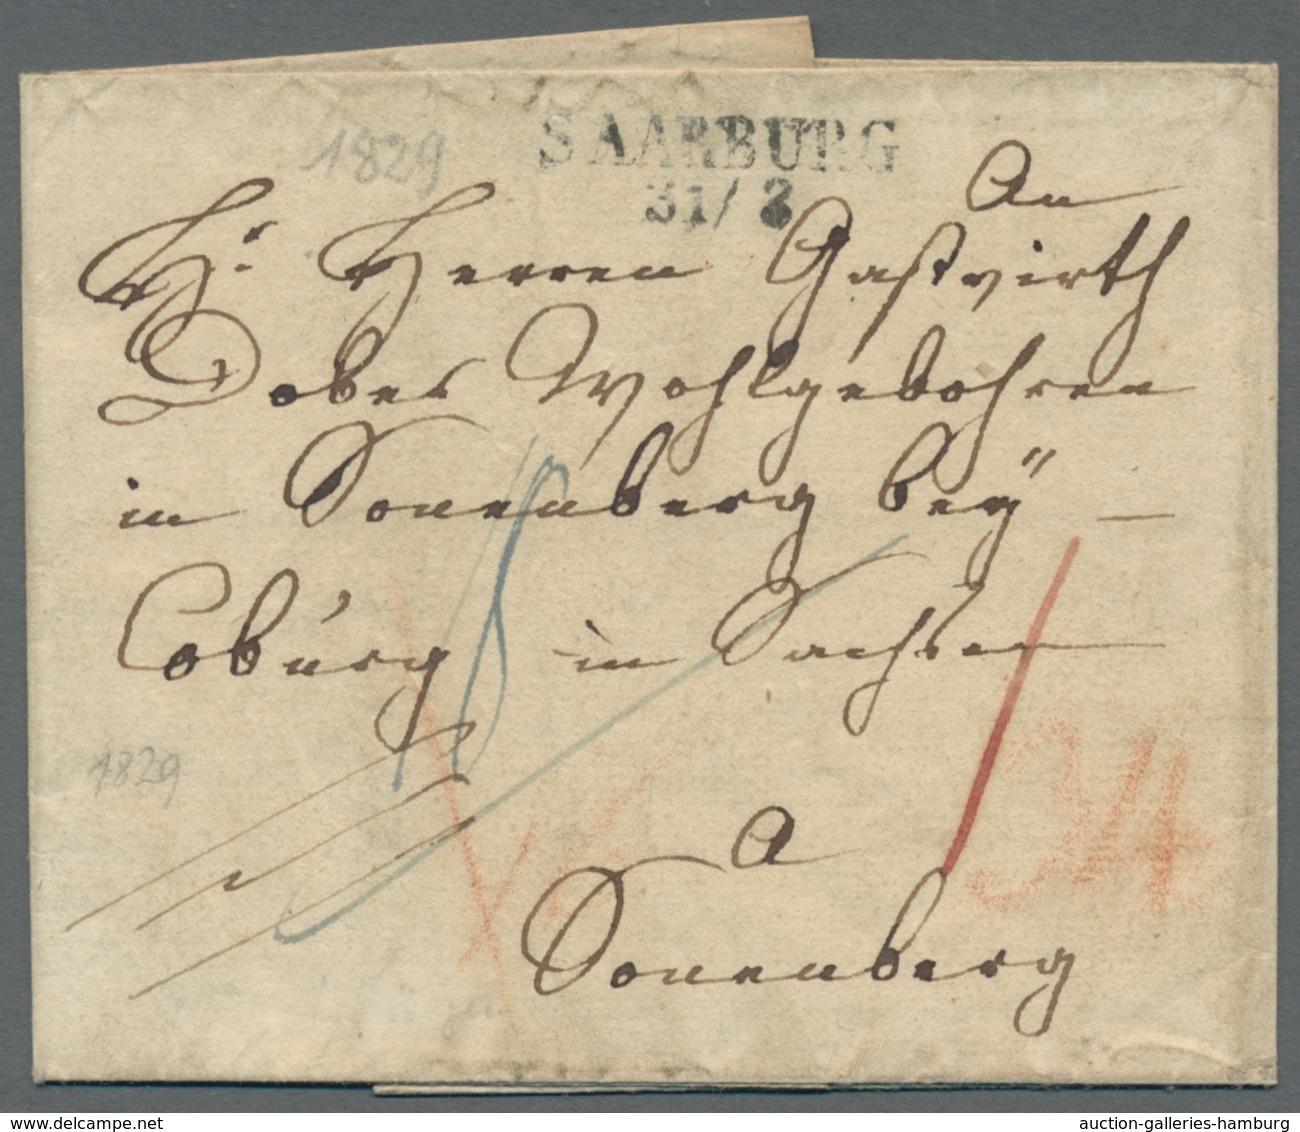 1829
SAARBURG
31/8
An
Hr. Herren Gastwirth
Dober Wohlgebohren
in Sonenberg beÿ
Coburg in Sachsen
1829
34
a
Sonenberg
www.delcampe.net
auction-galleries-hamburg